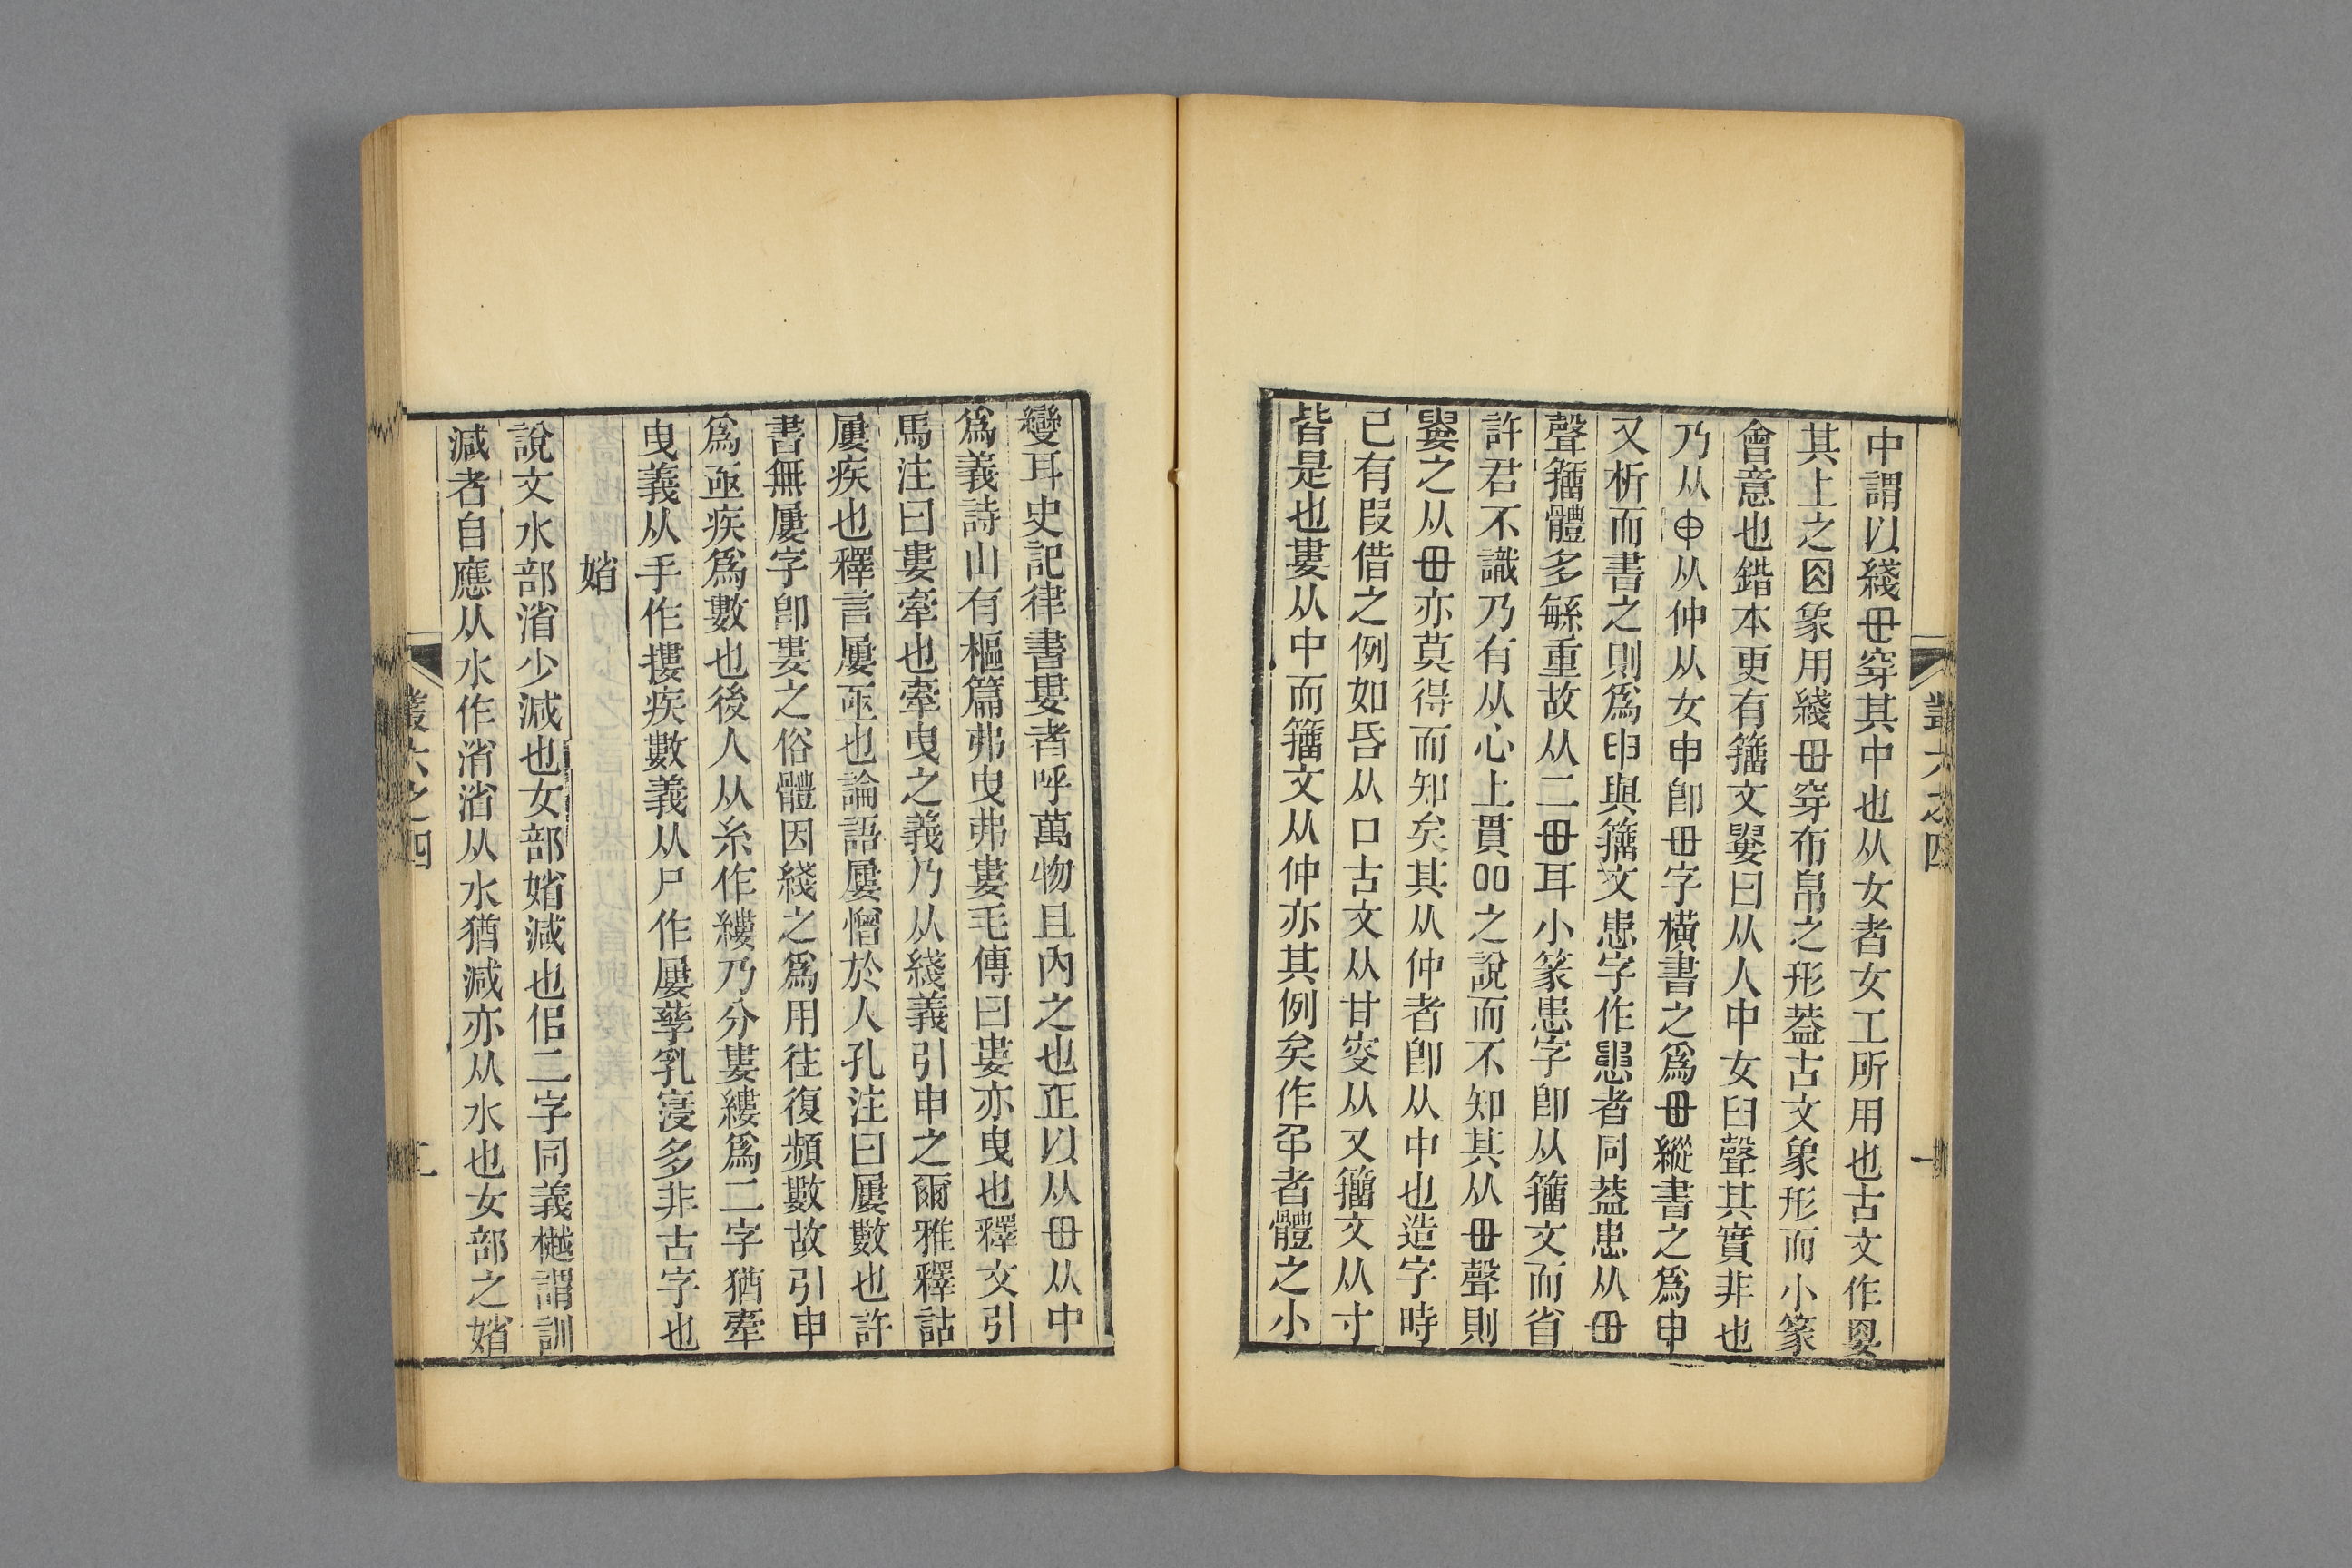 中謂以綫毌穿其中也从女者女工所用也古文作㛮
其上之囟象用綫毌穿布帛之形葢古文象形而小篆
會意也鍇本更有籒文㜢曰从人中女臼聲其實非也
乃从中从仲从女申卽毌字橫書之爲毌縱書之爲申
又析而書之則爲𦥔與籒文患字作𢥞者同葢患从毌
聲籒體多緐重故从二毌耳小篆患字卽从籒文而省
許君不識乃有从心上貫吅之說而不知其从毌聲則
㜢之从毌亦莫得而知矣其从仲者卽从中也造字時
已有叚借之例如昏从口古文从甘叜从又籒文从寸
皆是也婁从中而籒文从仲亦其例矣作𢎨者體之小
叢六之四
一
變耳史記律書婁者呼萬物且內之也正以从毌从中
爲義詩山有樞篇弗曳弗婁毛傳曰婁亦曳也釋文引
馬注曰婁牽也牽曳之義乃从綫義引申之爾雅釋詁
屢疾也釋言屢亟也論語屢憎於人孔注曰屢數也許
書無屢字卽婁之俗體因綫之爲用往復頻數故引申
爲亟疾爲數也後人从糸作縷乃分婁縷爲二字猶牽
曳義从手作摟疾數義从尸作屢孳乳寖多非古字也
媘
說文水部渻少減也女部媘減也侣二字同義樾謂訓
減者自應从水作渻渻从水猶減亦从水也女部之媘
叢六之四
二